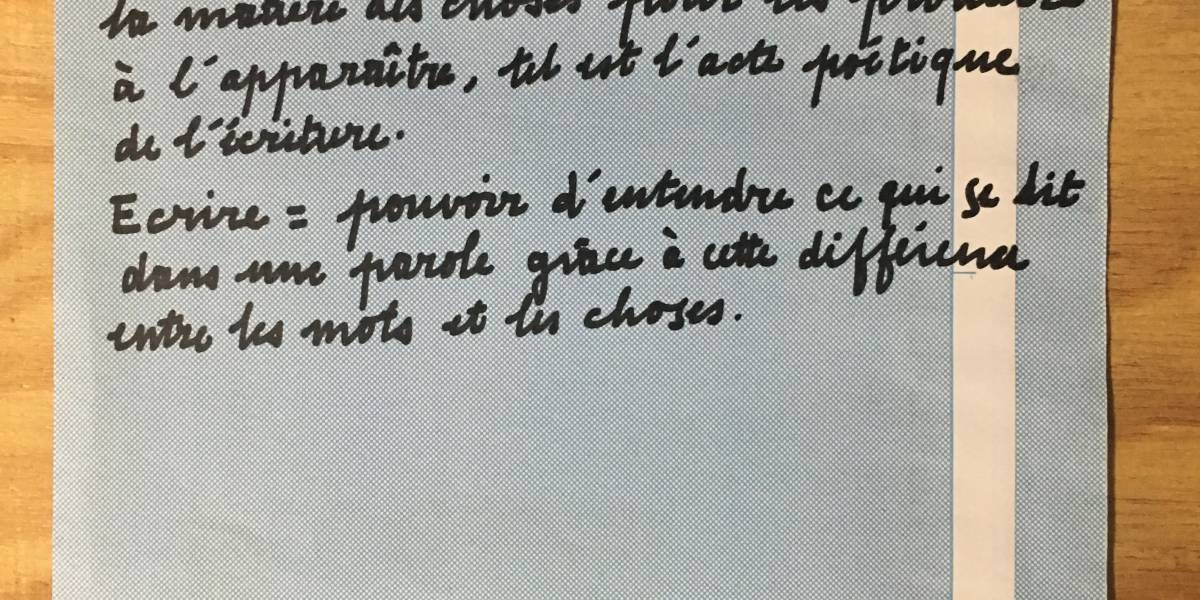 la matière des choses pour les produire
à l'apparaître, tel est l'acte poétique
de l'écriture.
Ecrire = pouvoir d'entendre ce qui se dit
dans une parole grâce à cette différence
entre les mots et les choses.